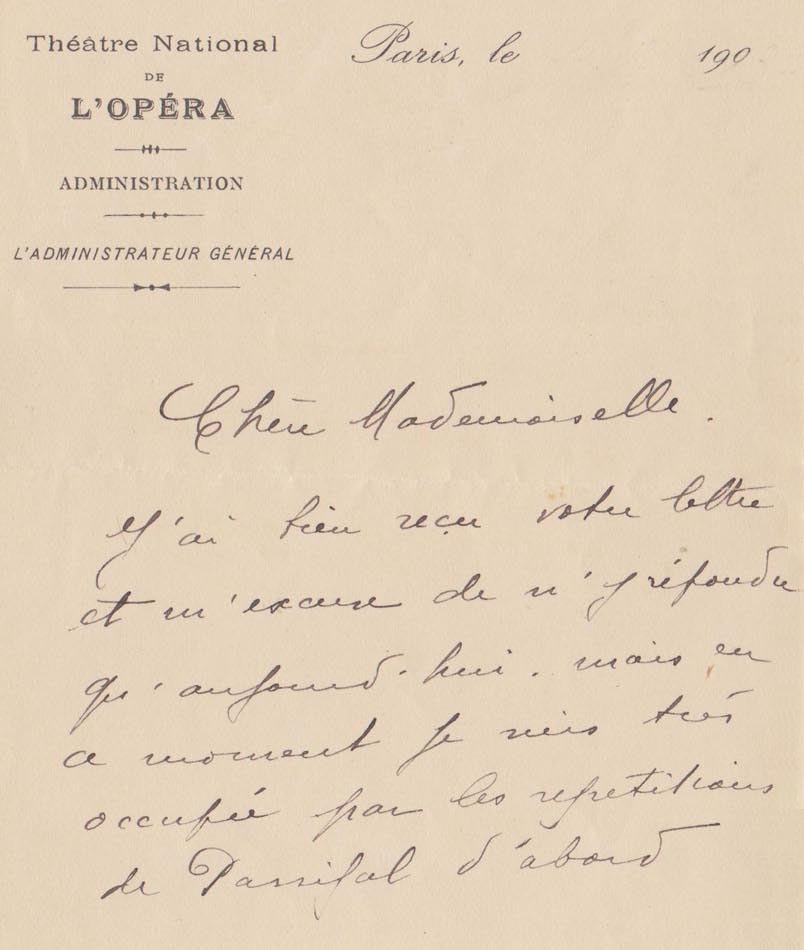 Théâtre National
DE
L'OPÉRA
ADMINISTRATION
L'ADMINISTRATEUR GÉNÉRAL
Paris, le 190
Chère Mademoiselle.
J'ai bien reçu votre lettre
et m'excuse de n'y répondre
qu'aujourd'hui. mais en
ce moment je suis très
occupée par les repetitions
de Parsifal d'abord